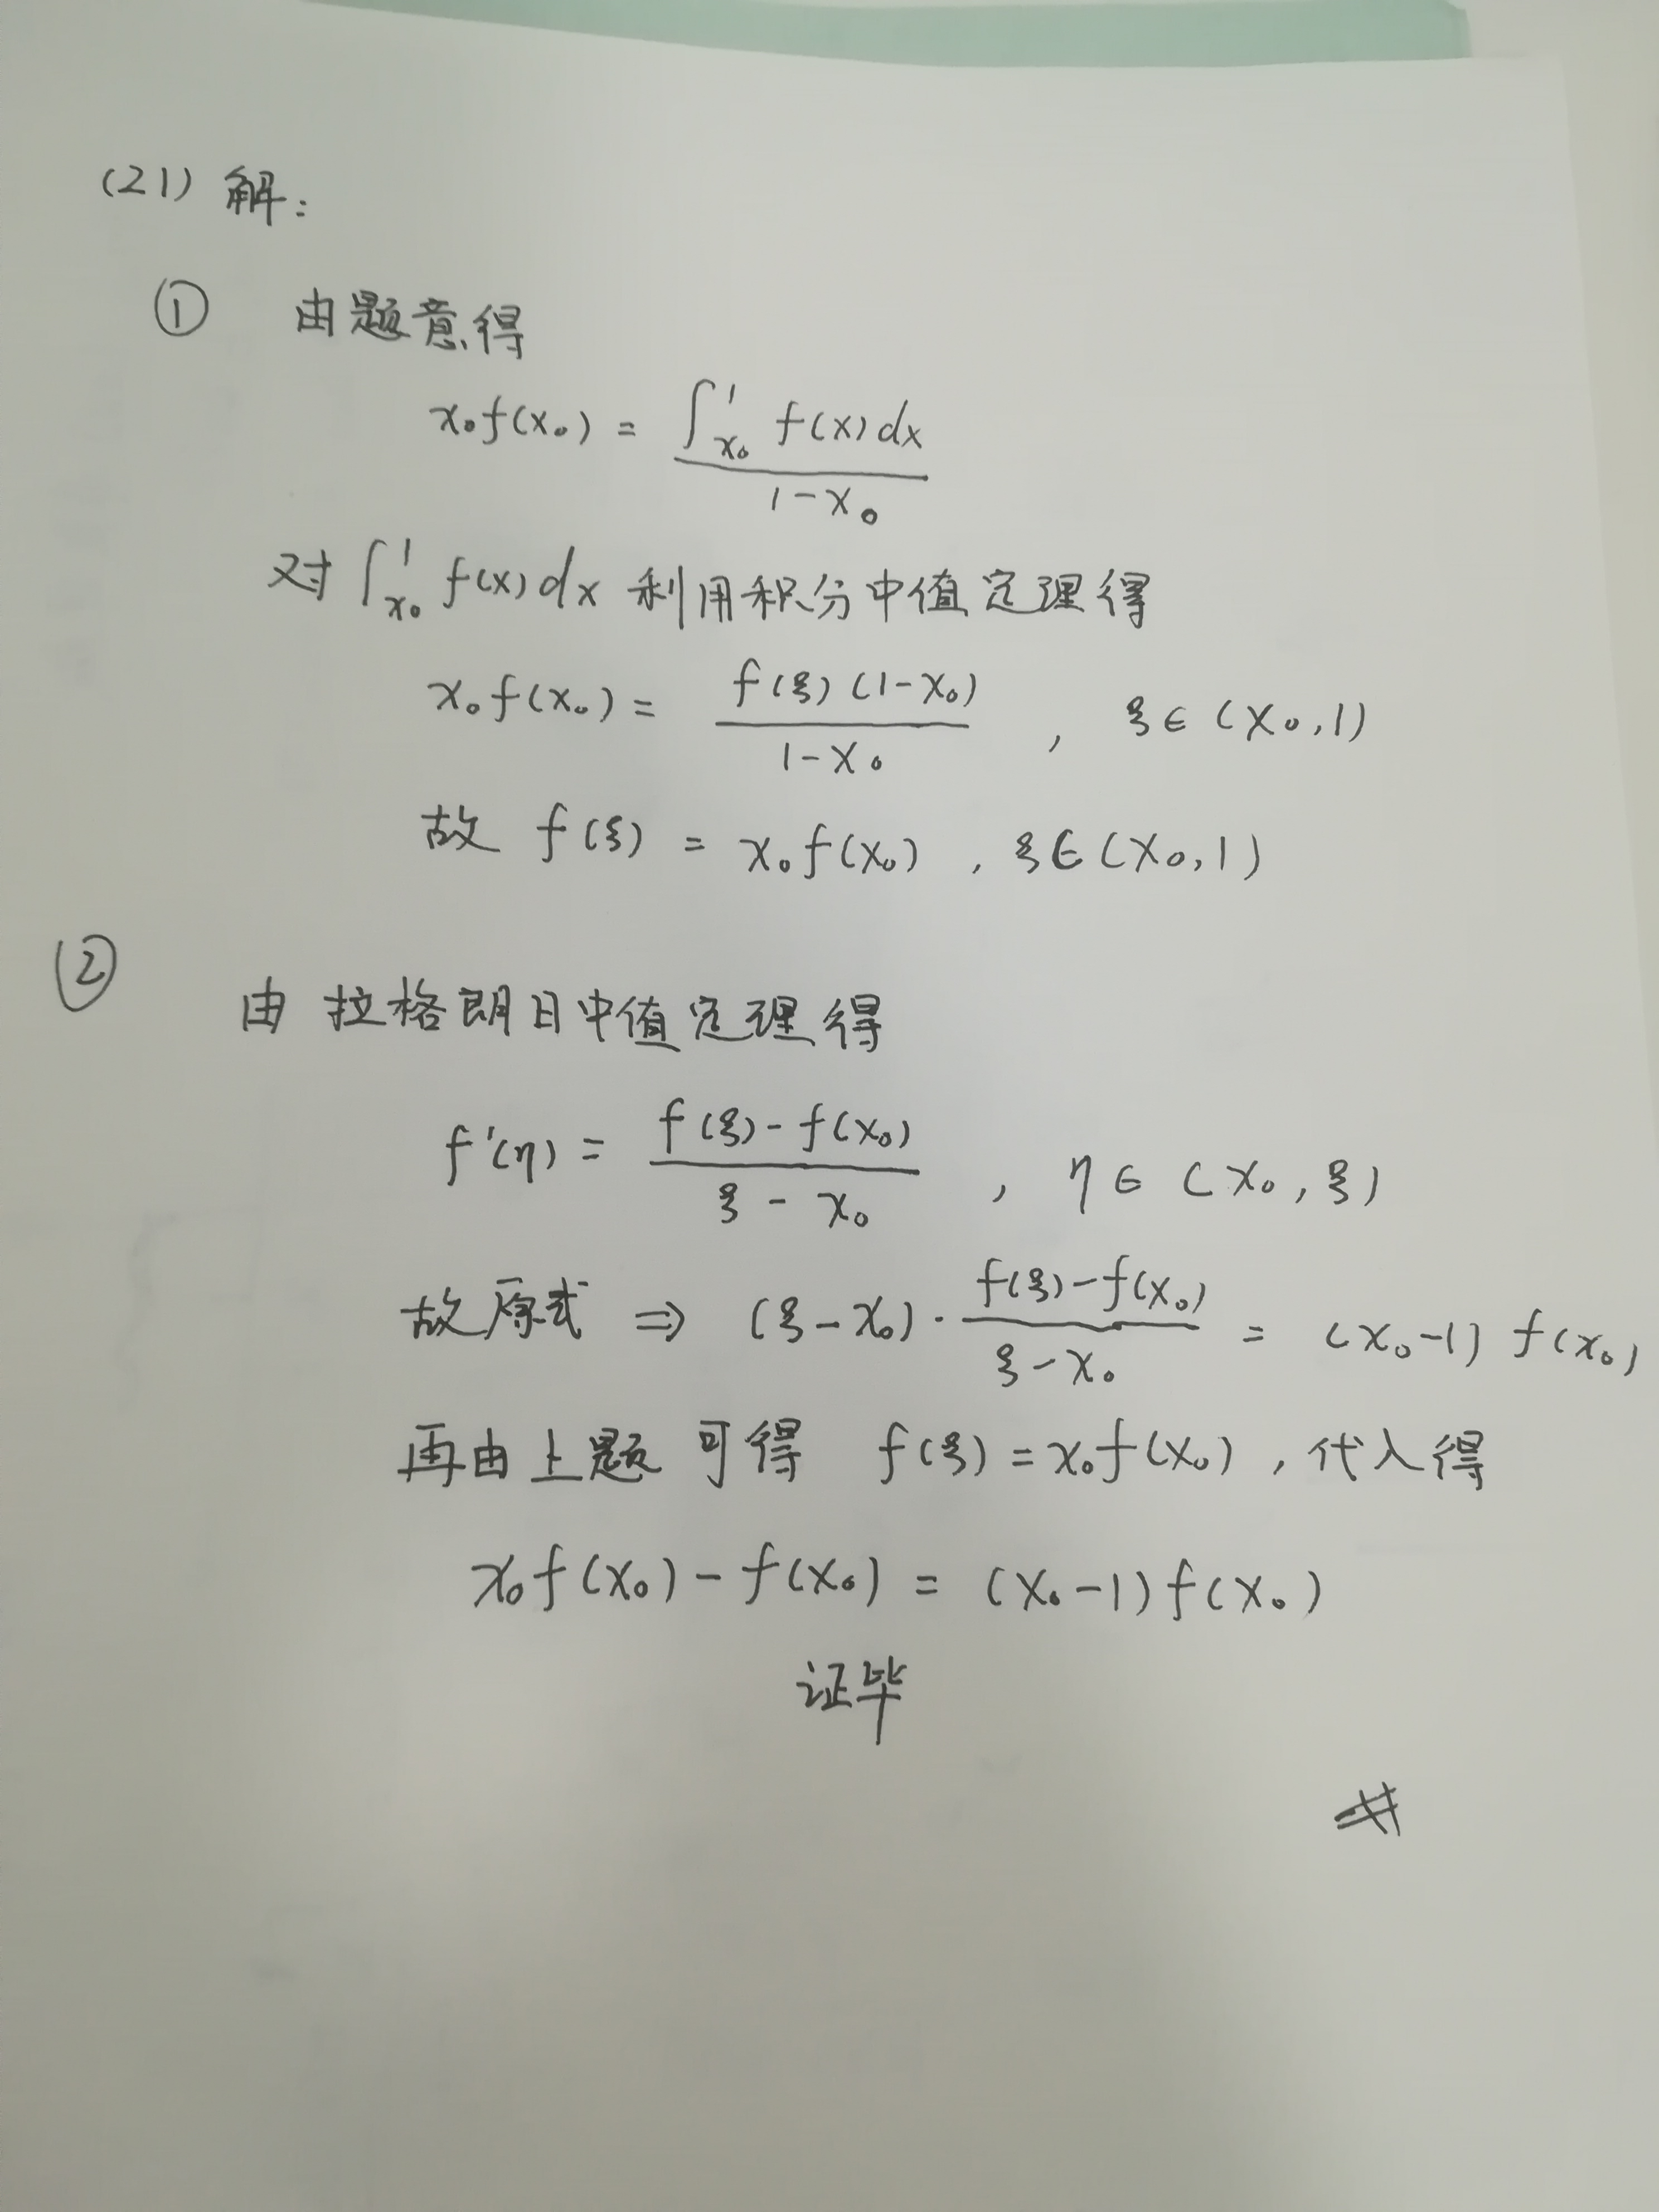 (21) 解：
① 由题意得
x₀f(x₀) = ∫_{x₀}^{1} f(x)dx / (1-x₀)
对 ∫_{x₀}^{1} f(x)dx 利用积分中值定理得
x₀f(x₀) = f(ξ)(1-x₀) / (1-x₀) , ξ∈(x₀,1)
故 f(ξ) = x₀f(x₀) , ξ∈(x₀,1)
②
由拉格朗日中值定理得
f'(η) = (f(ξ)-f(x₀)) / (ξ-x₀) , η∈(x₀,ξ)
故原式 ⇒ (ξ-x₀)·(f(ξ)-f(x₀)) / (ξ-x₀) = (x₀-1)f(x₀)
再由上题可得 f(ξ)=x₀f(x₀)，代入得
x₀f(x₀)-f(x₀) = (x₀-1)f(x₀)
证毕
#